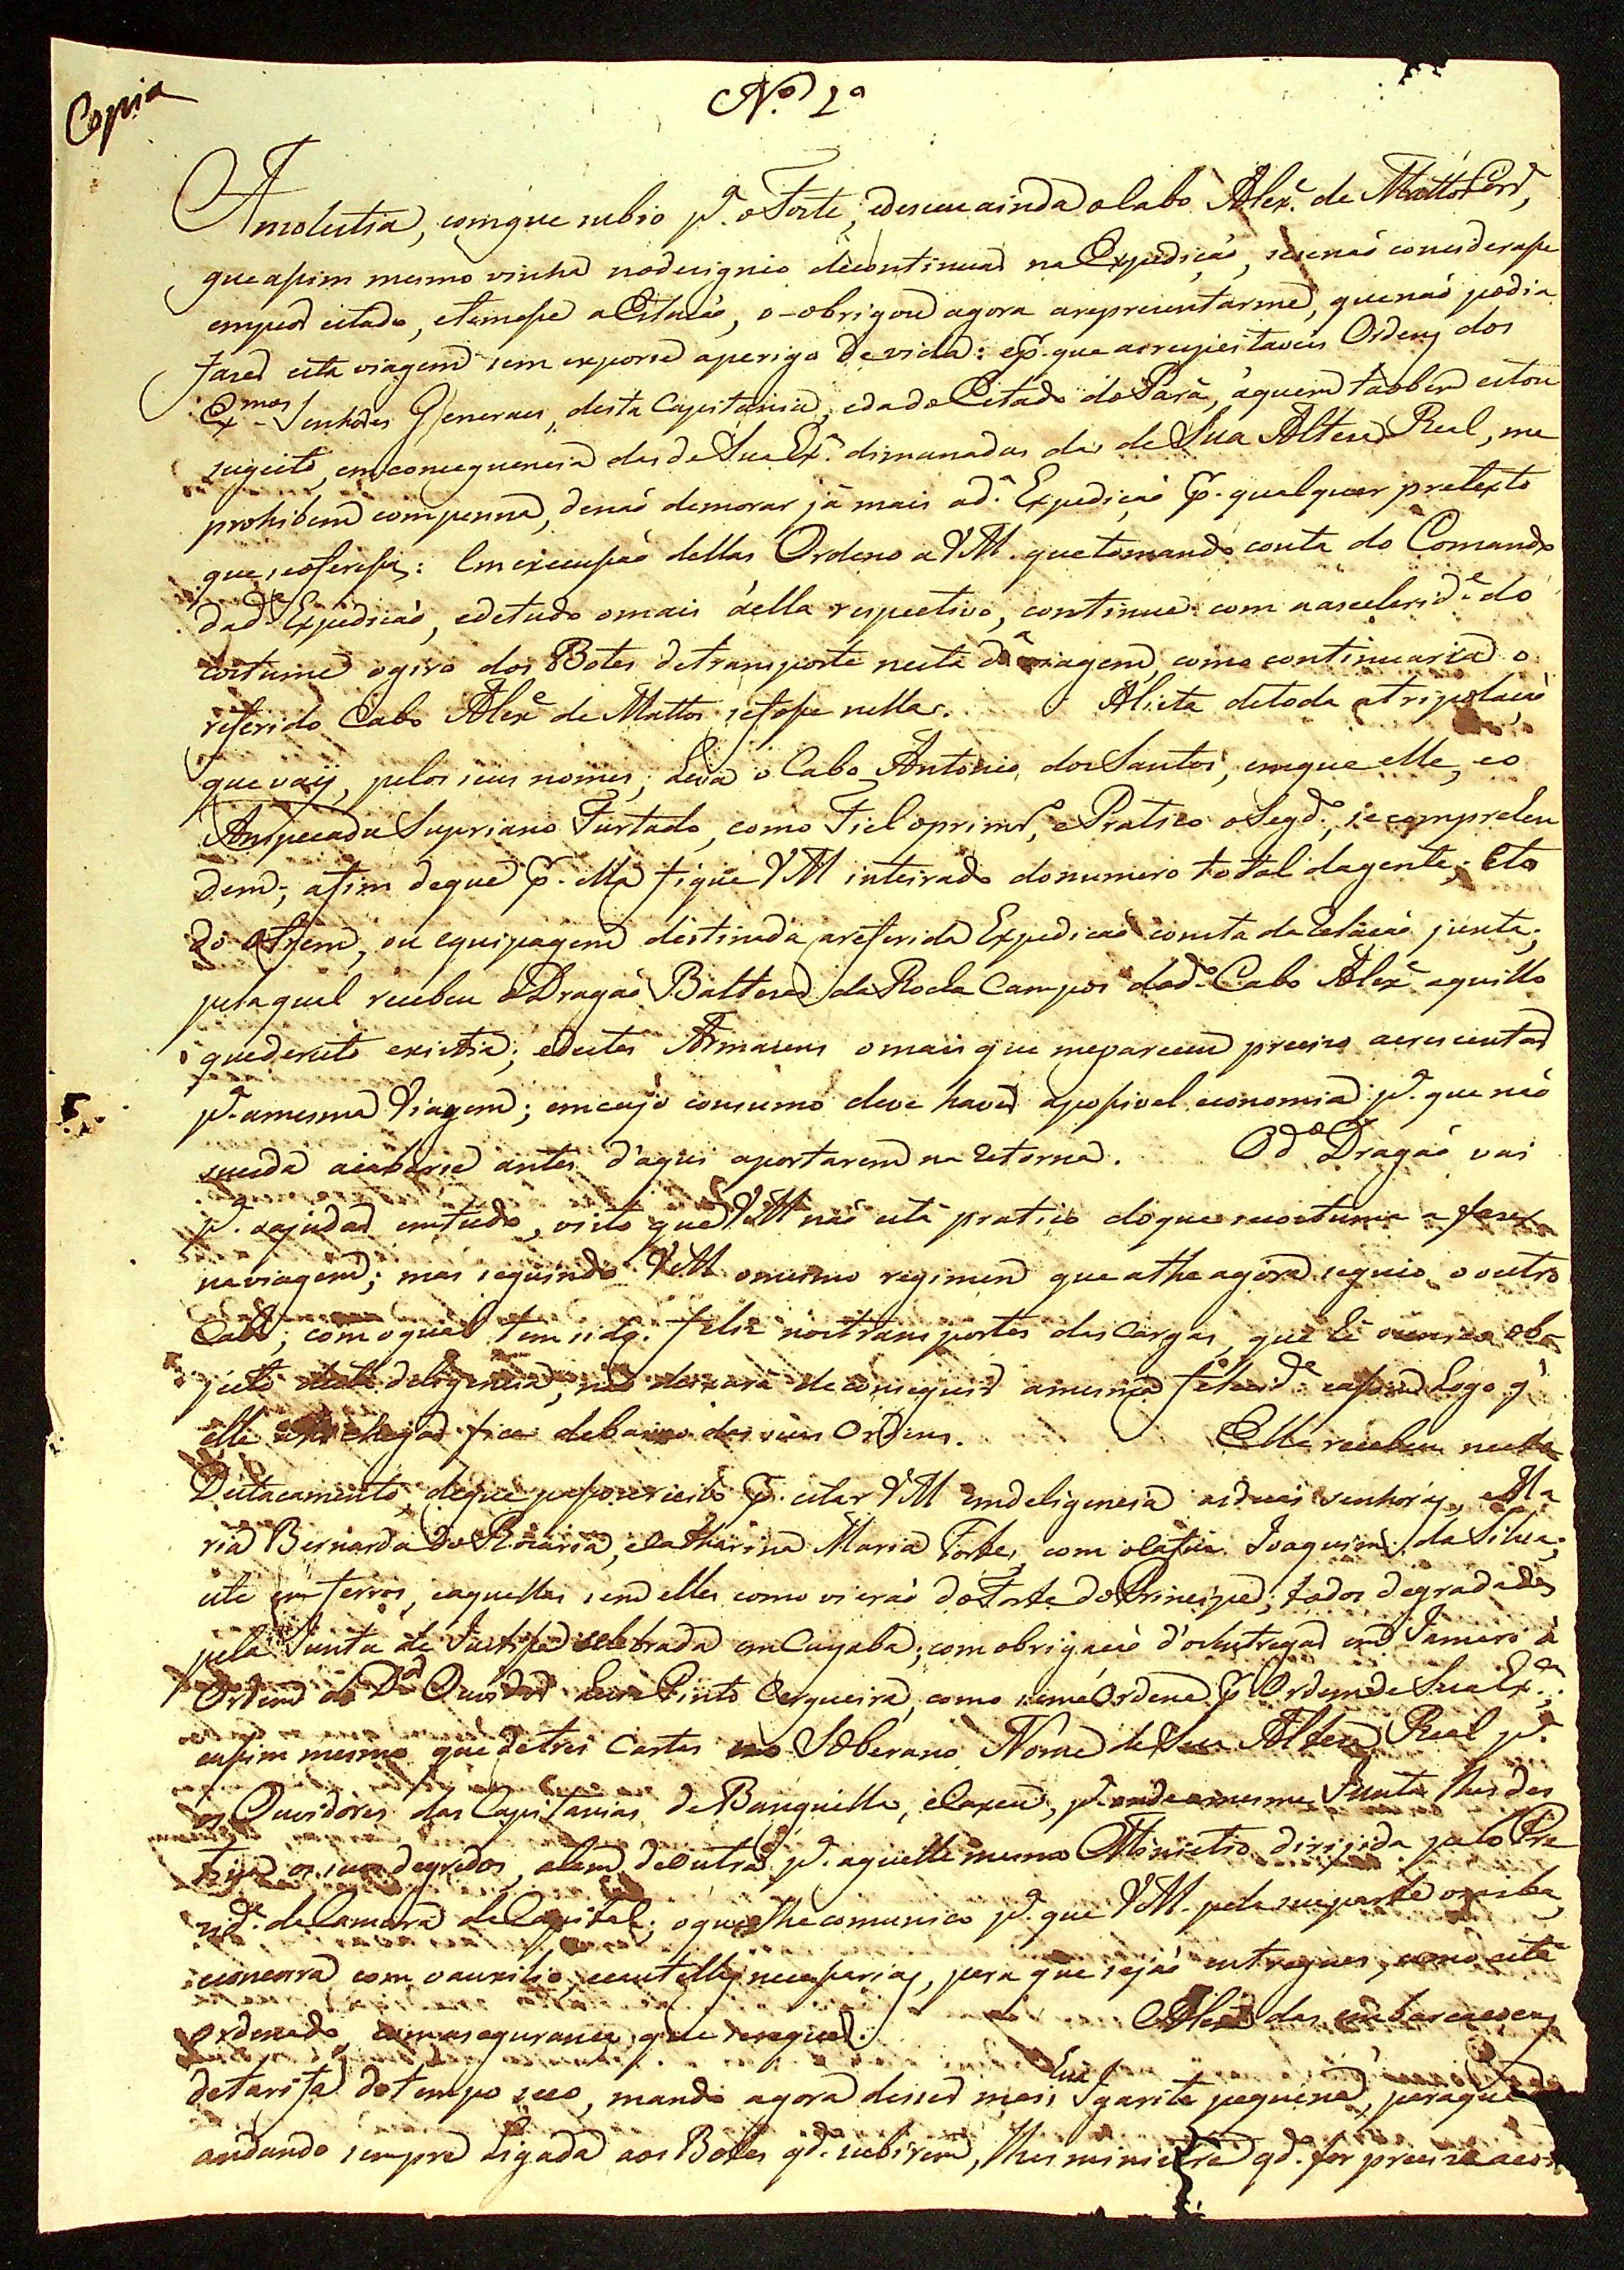 Copia
N.º 2º
A molestia, com que subio p.ª o Forte, e desceu ainda o Cabo Alex.e de Mattos Cord.º,
que assim mesmo vinha no designio de continuar na Expedição, se senão considerasse
em peor estado, e temesse a Estação, o-obrigou agora a representarme, que não podia
fazer esta viagem sem exporse a perigo de vida: e p.r que as respeitaveis Ordens dos
Ex.mos Senhores Generaes, desta Capitania, e da do Estado do Pará, á quem tãobem estou
sugeito, em consequencia das de Sua Ex.ª dimanadas das de Sua Alteza Real, me
prohibem com penna, de não demorar já mais a d.ª Expedição p.r qualquer pretexto
que se oferessa: Em execussão dellas Ordeno a VM. que tomando conta do Comando
da d.ª Expedição, e de tudo o mais á ella respectivo, continue com a ascelerid.e do
costume o giro dos Botes de transporte nesta d.ª viagem, como continuaria o
referido Cabo Alex.e de Mattos se fosse nella. A lista de toda a tripolação
que vaij, pelos seus nomes, leva o Cabo Antonio dos Santos, em que elle, e o
Anspecada Supriano Furtado, como Fiel o prim.º, e Pratico o Seg.do, se comprehen
dem; afim de que p.r ella fique VM inteirado do numero total da gente; E to
do o trem, ou equipagem destinada a referida Expedição consta da Relação junta;
pela qual recebeu o Dragão Baltezar da Rocha Campos do d.º Cabo Alex.e aquillo
que de resto existia; e destes Armazens o mais que me pareceu preciso acrescentar
p.ª a mesma Viagem; em cujo consumo deve haver a possivel economia p.ª que não
suceda acabarse antes d'aqui aportarem na retorna. O d.º Dragão vai
p.ª o ajudar em tudo, visto que VM não está pratico do que se costuma a fazer
na viagem; mas seguindo VM o mesmo regimen que athe agora seguio o outro
Cabo; com o qual tem sido feliz nos transportes das cargas, que hé o unico ob-
jecto desta deligencia, não deixará de conseguir a mesma felicid.e e assim Logo q'
elle chegar fica debaixo das suas Ordens. Elle recebeu neste
Destacamento, de que passou recibo p.r estar VM em deligencia as duas senhoras, Ma
ria Bernarda do Rozario, e Catharina Maria Forte, com o Joaquim da Silva;
este em ferros, e aquellas sem elles como vierão do Forte do Principe; todos degradados
pela Junta de Justissa selebrada em Cuyaba; com obrigação d'os entregar em Jamari á
Ordem do D.or Ouvidor Luiz Pinto Cerqueira, como se me Ordena p.r Ordem de Sua Ex.ª;
e assim mesmo que de tres Cartas no Soberano Nome de Sua Alteza Real p.ª
os Ouvidores das Capitanias de Banguella, e Caxeu, p.ª onde a mesma Junta lhes des
tina os seus degredos, alem de outra p.ª aquelle mesmo Ministro dirigida pelo Pre
zid.e da Camara da Capital; o que lhe comunico p.ª que VM. pela sua parte o saiba,
e concorra com o auxilio, e cautellas necessarias, para que sejão entregues, como está
ordenado, com a segurança que se requer. Alem das embarcaçoens
da tarifa do tempo seco, mando agora desser mais hua Igarité pequena, para que
andando sempre Ligada aos Botes q.do subirem, lhes ministre q.do for preciso